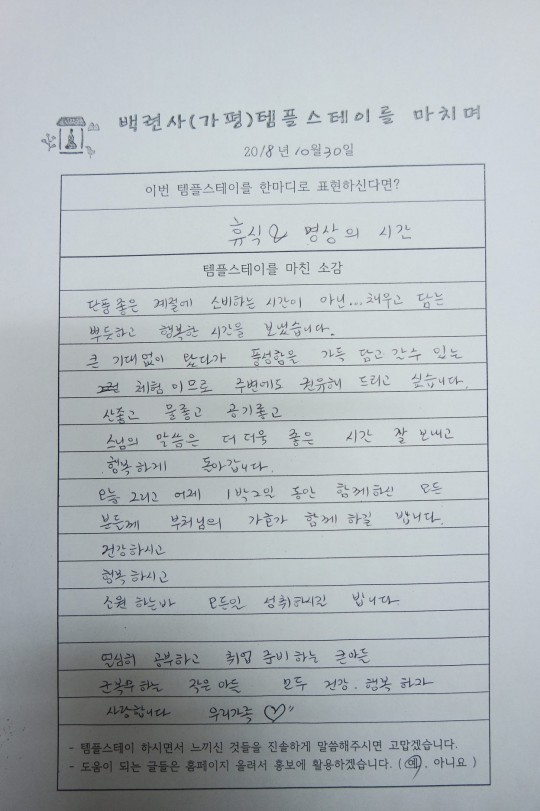 백련사(가평)템플스테이를 마치며
2018년 10월 30일
이번 템플스테이를 한마디로 표현하신다면?
휴식 & 명상의 시간
템플스테이를 마친 소감
단풍좋은 계절에 소비하는 시간이 아닌... 채우고 담는
뿌듯하고 행복한 시간을 보냈습니다.
큰 기대없이 왔다가 풍성함을 가득 담고 갈수 있는
체험이므로 주변에도 권유해 드리고 싶습니다.
산좋고 물좋고 공기좋고
스님의 말씀은 더 더욱 좋은 시간 잘 보내고
행복하게 돌아갑니다.
오늘 그리고 어제 1박2일 동안 함께하신 모든
분들께 부처님의 가호가 함께 하길 빕니다.
건강하시고
행복하시고
소원 하는바 모든일 성취하시길 빕니다.
열심히 공부하고 취업 준비하는 큰아들
군복무하는 작은 아들 모두 건강. 행복 하자
사랑합니다 우리가족 ♡"
- 템플스테이 하시면서 느끼신 것들을 진솔하게 말씀해주시면 고맙겠습니다.
- 도움이 되는 글들은 홈페이지 올려서 홍보에 활용하겠습니다. (예. 아니요)